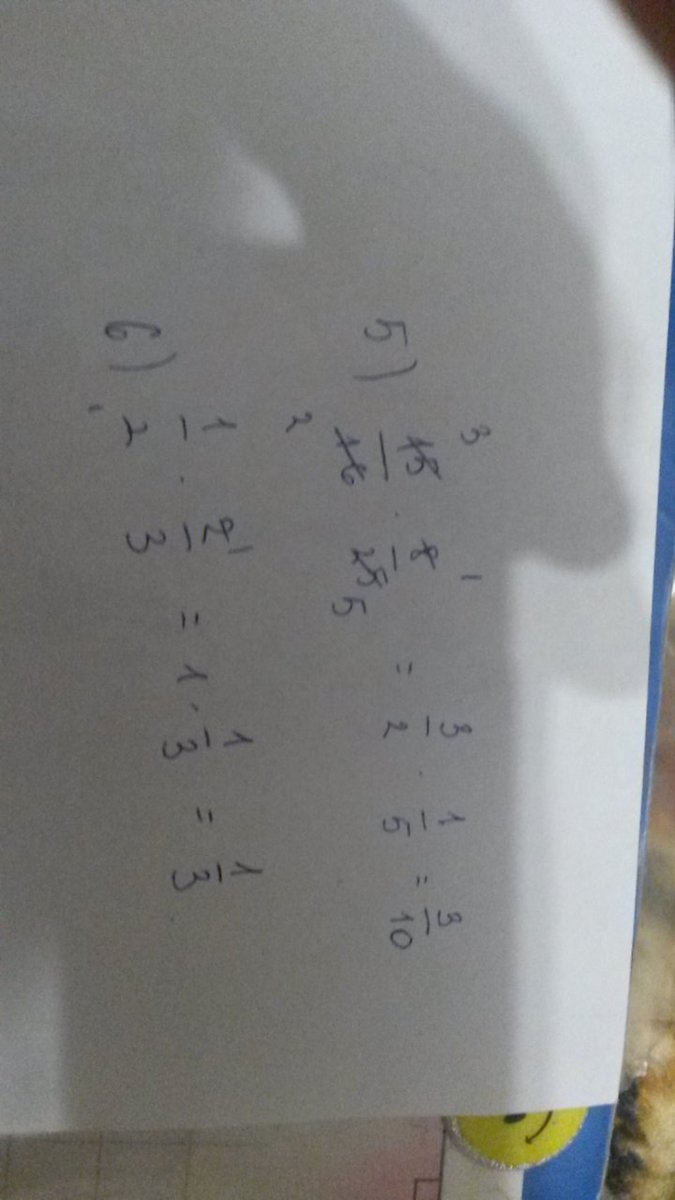 5) 15/16 · 8/25 = 3/2 · 1/5 = 3/10
6) 1/2 · 2/3 = 1 · 1/3 = 1/3